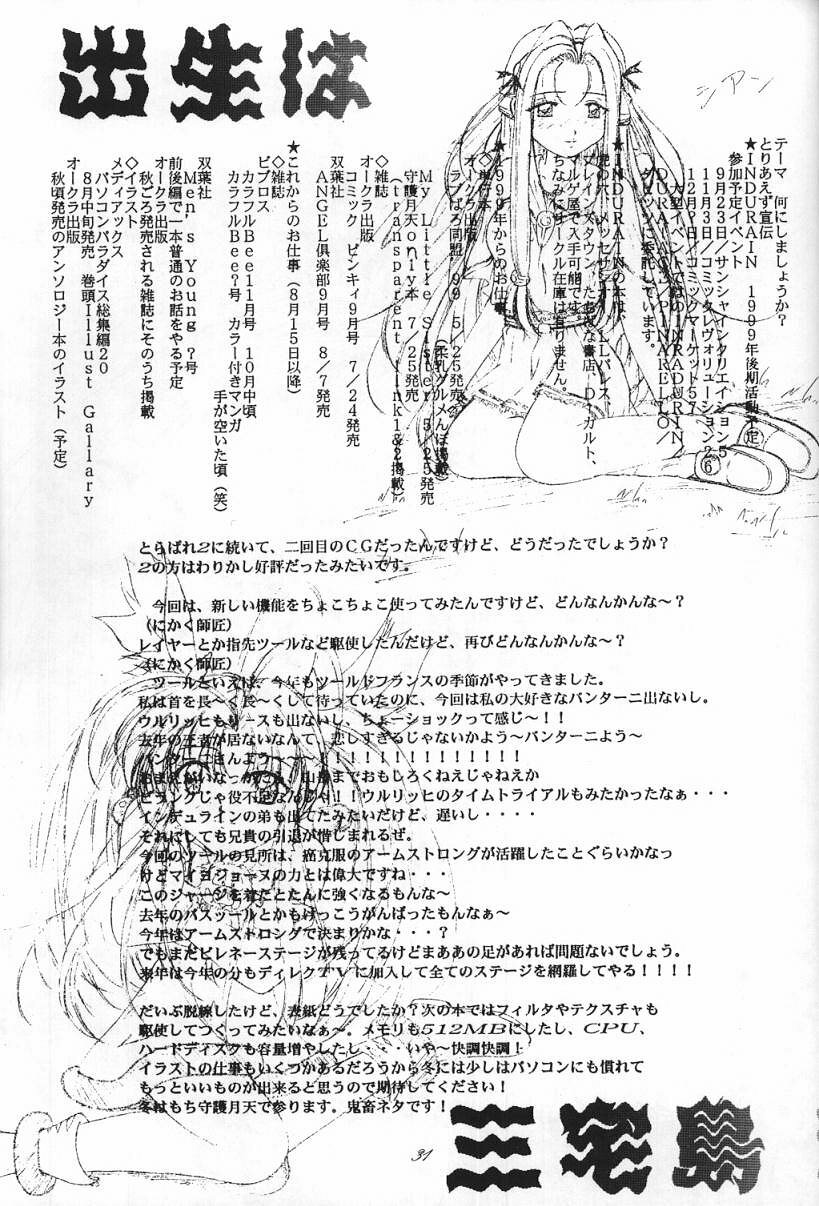 出生は
シアン
テーマ　何にしましょうか？
とりあえず宣伝
★INDURAIN　1999年後期活動予定
参加予定イベント
9月23日／サンシャインクリエイション5
11月3日／コミックレヴォリューション26
12月?日／コミックマーケット57
大型イベントではのINRADURIN／
DURA-ACE／PINARELLO／
ダヒッツに委託しています。
★INDURAINの本は、
虎の穴、メッセサンオー、LLパレス、
プレインズスタウン、たちばな書店、D・ガルト、
マルゲ屋で入手可能です。
ちなみにサークル在庫は有りません。
★1999年からのお仕事
◇単行本
オークラ出版
ラブぱろ同盟　99　5／25発売
（柔乳グルメんぼ掲載）
My Little Sister 5／25発売
守護月天only本　7／25発売
（transparent link1＆2掲載）
◇雑誌
オークラ出版
コミック　ピンキィ9月号　7／24発売
双葉社
ANGEL倶楽部9月号　8／7発売
★これからのお仕事（8月15日以降）
◇雑誌
ビブロス
カラフルBee11月号　10月中頃
カラフルBee?号　カラー付きマンガ
手が空いた頃（笑）
双葉社
Men's Young　?号
前後編で一本普通のお話をやる予定
オークラ出版
秋ごろ発売される雑誌にそのうち掲載
◇イラスト
メディアックス
パソコンパラダイス総集編20
8月中旬発売　巻頭Illust Gallary
オークラ出版
秋頃発売のアンソロジー本のイラスト（予定）
とらぱれ2に続いて、二回目のCGだったんですけど、どうだったでしょうか？
2の方はわりかし好評だったみたいです。
今回は、新しい機能をちょこちょこ使ってみたんですけど、どんなんかんな～？
（にかく師匠）
レイヤーとか指先ツールなど駆使したんだけど、再びどんなんかんな～？
（にかく師匠）
ツールといえば、今年もツールドフランスの季節がやってきました。
私は首を長～く長～くして待っていたのに、今回は私の大好きなパンターニ出ないし。
ウルリッヒもリースも出ないし、ちょーショックって感じ～！！
去年の王者が居ないなんて、悲しすぎるじゃないかよう～パンターニよう～
パンターニさんよう～～～！！！！！！！！！！！！！！！
おまえがいなっかたら、山岳までおもしろくねえじゃねえか
ビランクじゃ役不足なんじゃ！！ウルリッヒのタイムトライアルもみたかったなぁ・・・
インデュラインの弟も出てたみたいだけど、遅いし・・・・
それにしても兄貴の引退が惜しまれるぜ。
今回のツールの見所は、癌克服のアームストロングが活躍したことぐらいかなっ
けどマイヨジョーヌの力とは偉大ですね・・・
このジャージを着たとたんに強くなるもんな～
去年のバスツールとかもけっこうがんばったもんなぁ～
今年はアームストロングで決まりかな・・・？
でもまだピレネーステージが残ってるけどまああの足があれば問題ないでしょう。
来年は今年の分もディレクTVに加入して全てのステージを網羅してやる！！！！
だいぶ脱線したけど、表紙どうでしたか？次の本ではフィルタやテクスチャも
駆使してつくってみたいなぁ～。メモリも512MBにしたし、CPU、
ハードディスクも容量増やしたし・・・いや～快調快調！
イラストの仕事もいくつかあるだろうから冬には少しはパソコンにも慣れて
もっといいものが出来ると思うので期待してください！
冬はもち守護月天で参ります。鬼畜ネタです！
三宅島
31